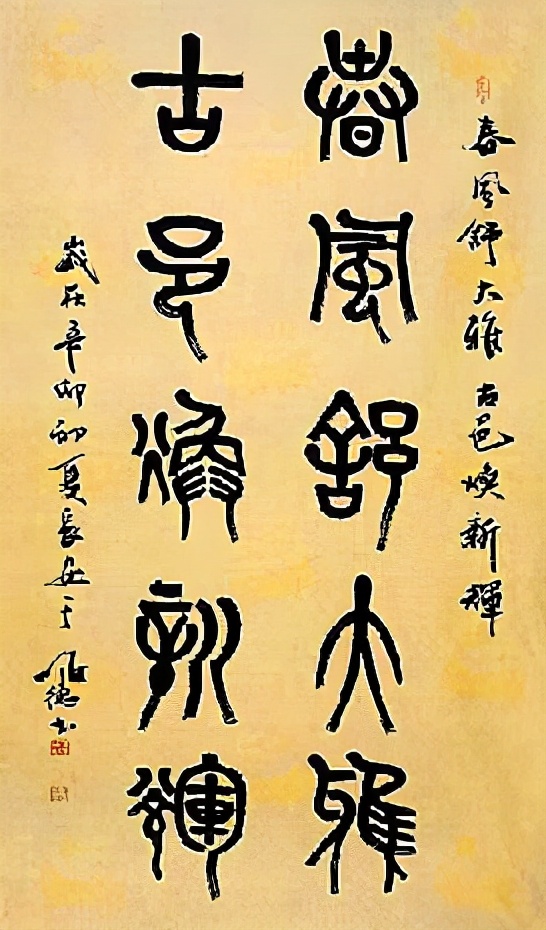 春風舒大雅古邑焕新輝
春風舒大雅
古邑焕新輝
歲在辛卯初夏長安于順德書